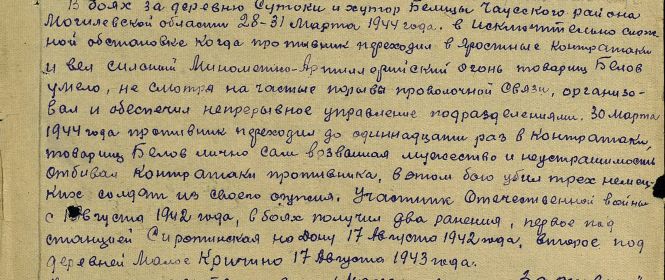 В боях за деревню Сутоки и хутор Белицы Чаусского района
Могилевской области 28-31 Марта 1944 года. в исключительно слож-
ной обстановке когда противник переходил в яростные контратаки
и вел сильный Минометно-Артиллерийский огонь товарищ Белов
умело, не смотря на частые порывы проволочной связи, организо-
вал и обеспечил непрерывное управление подразделениями. 30 марта
1944 года противник переходил до одиннадцати раз в контратаки,
товарищ Белов лично сам мужество и неустрашимость
отбивая контратаки противника, в этом бою убил трех немец-
ких солдат из своего оружия. Участник Отечественной войны
с Августа 1942 года, в боях получил два ранения, первое под
станцией Сиротинская на Дону 17 Августа 1942 года, второе под
деревней Малое Кричино 17 Августа 1943 года.